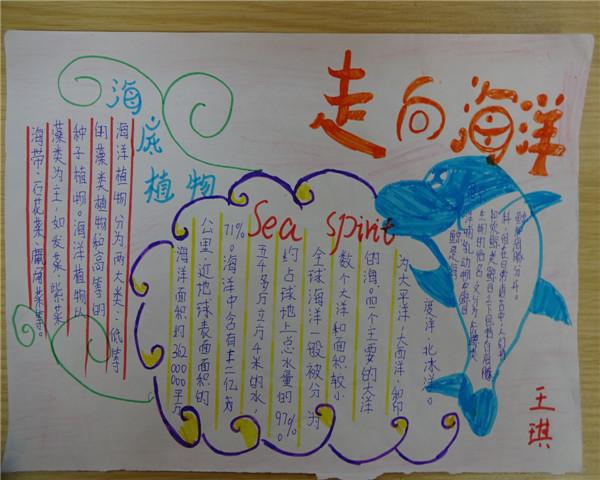 走向海洋
海底植物
海洋植物分为两大类:低等
的藻类植物和高等的
种子植物。海洋植物以
藻类为主,如发菜、紫菜
海带、石花菜、麒麟菜等。
Sea spirit
海洋面积约362000000平方
公里,近地球表面面积的
71%。海洋中含有十三亿
五千多万立方千米的水,
约占球地上总水量的97%。
全球海洋一般被分为
数个大洋和面积较小
的海,四个主要的大洋
为太平洋、大西洋、和印
度洋、北冰洋。
王琪